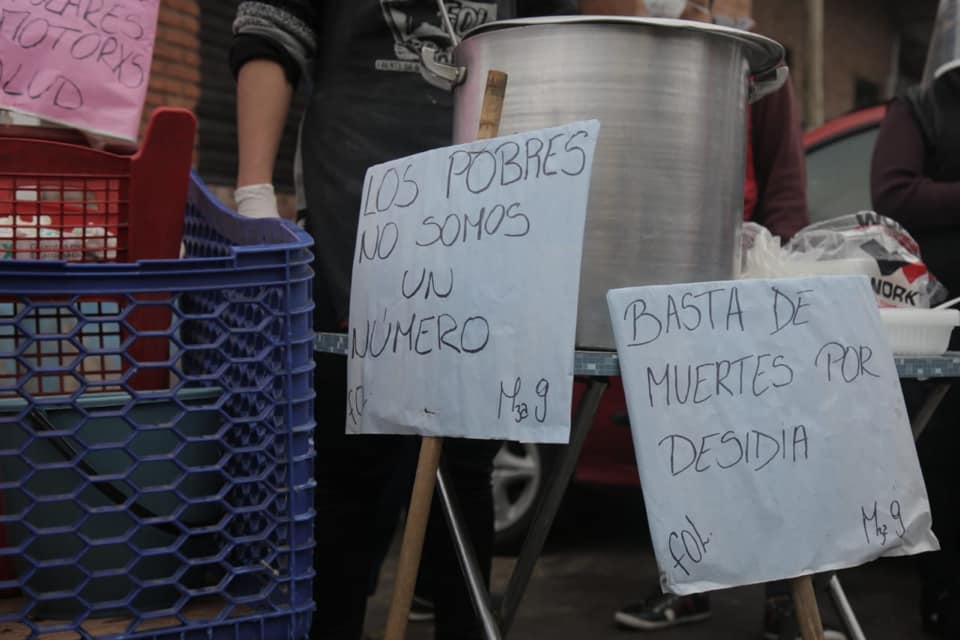 LARES
MOTORXS
SALUD
LOS POBRES
NO SOMOS
UN
NÚMERO
fol.
Mza 9
BASTA DE
MUERTES POR
DESIDIA
fol.
Mza 9
WORK